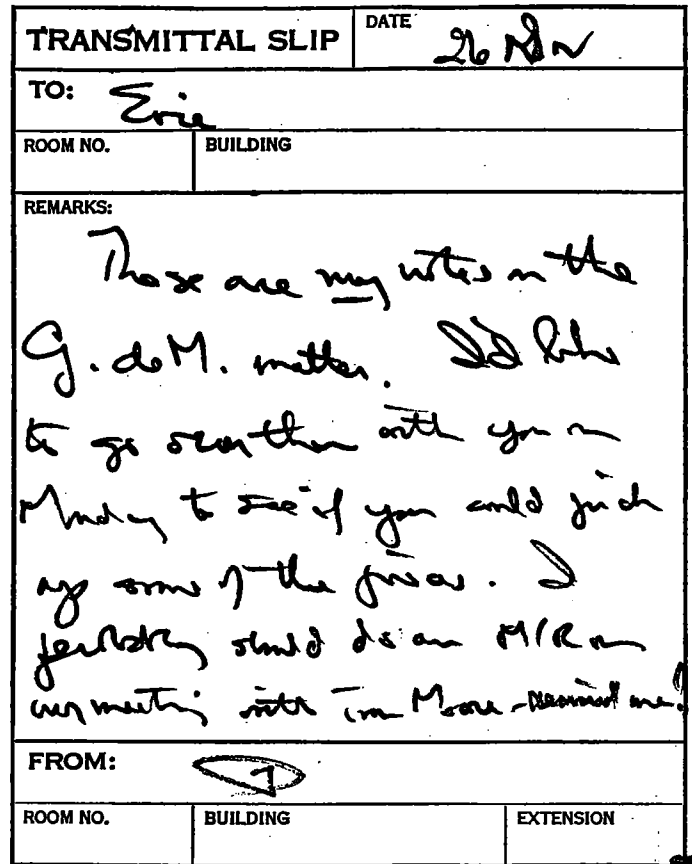 TRANSMITTAL SLIP
DATE
26 Nov
TO: Eric
ROOM NO.
BUILDING
REMARKS:
These are my notes on the
G. de M. matter. I'd like
to go over them with you on
Monday to see if you could pick
up some of the pieces. I
probably should do an M/R on
my meeting with Tom Moore - remind me!
FROM:
ROOM NO.
BUILDING
EXTENSION